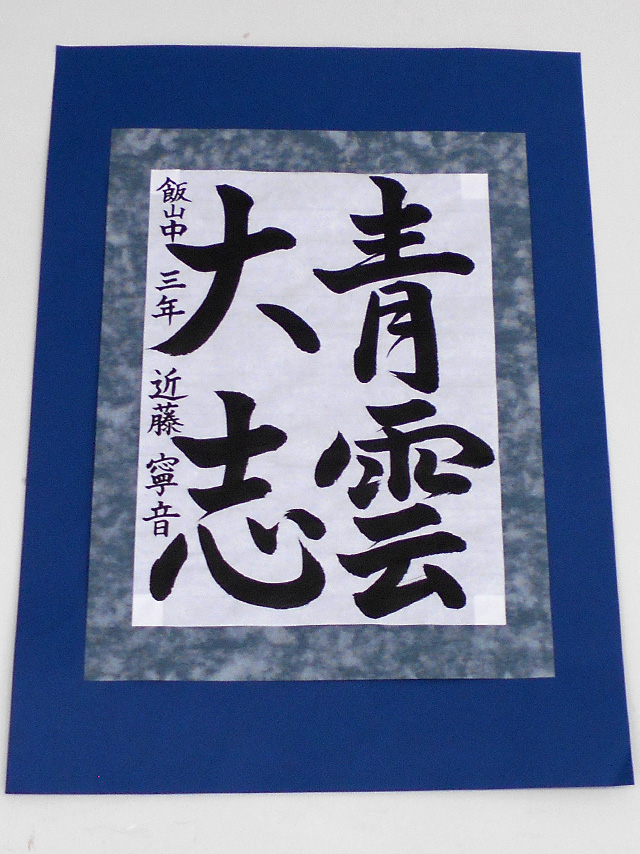 青雲
大志
飯山中 三年 近藤 寧音